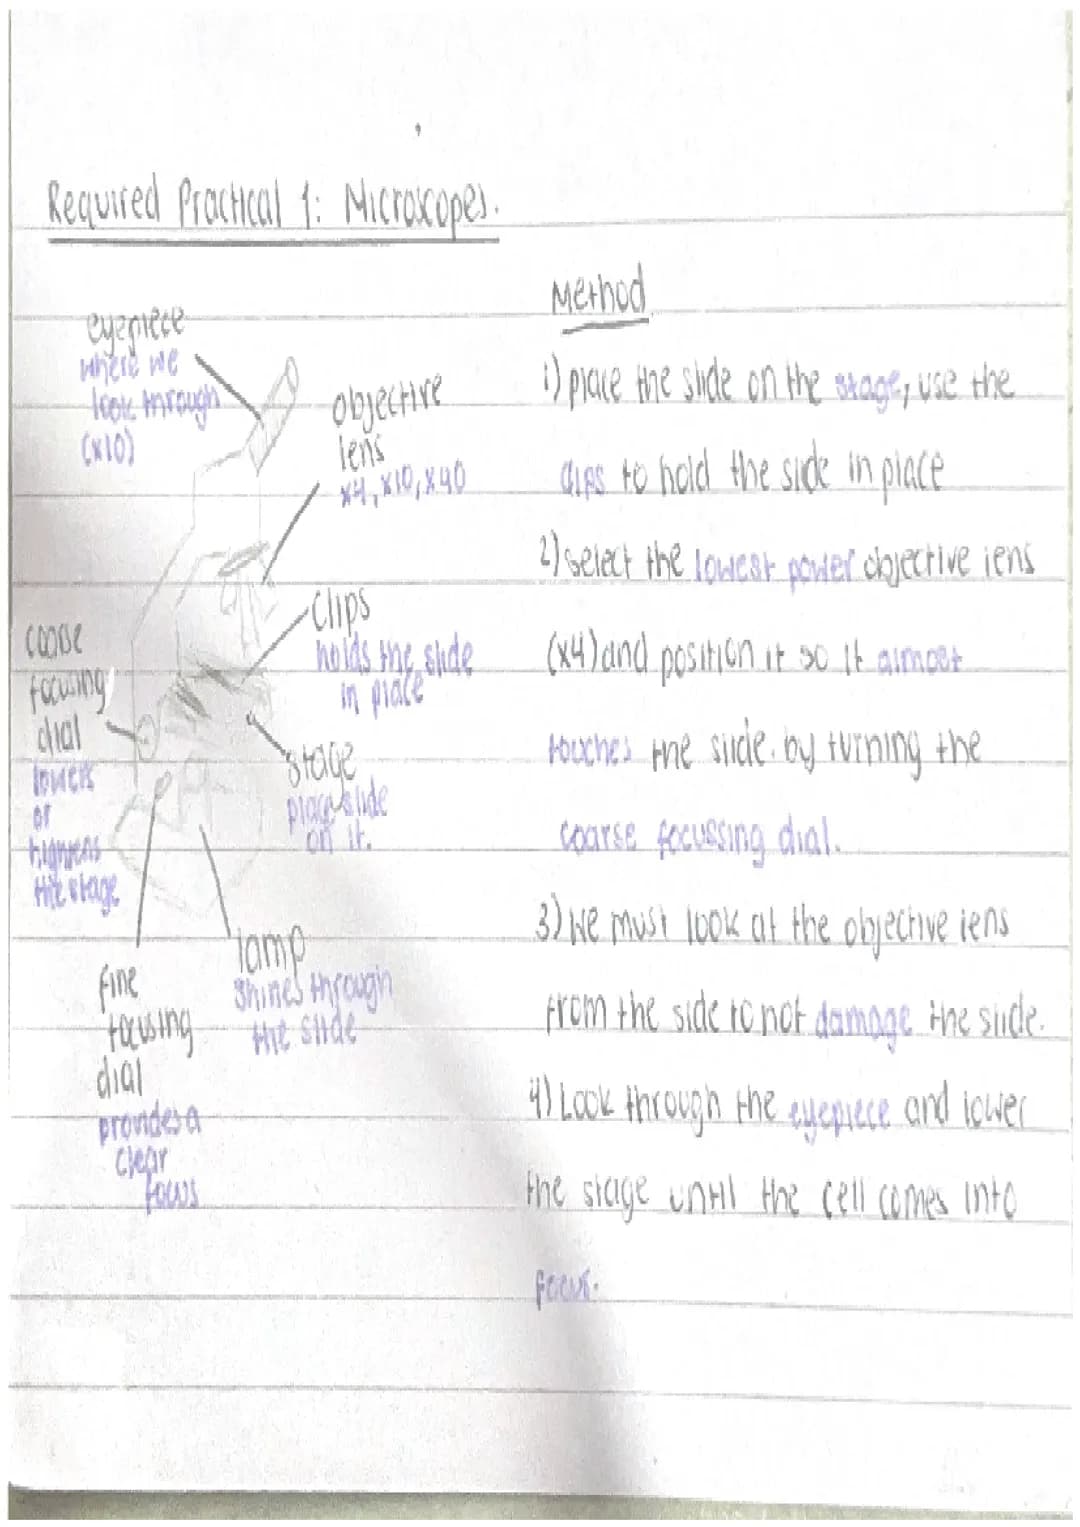 Required Practical 1: Microscopes.
eyepiece
where we
look through
(x10)
objective
lens
x4, x10, x40
clips
holds the slide
in place
coarse
focusing
dial
lowers
or
highens
the stage
stage
place slide
on it.
lamp
shines through
the slide
fine
focusing
dial
provides a
clear
focus
Method
1) place the slide on the stage, use the
clips to hold the side in place
2) select the lowest power objective lens
(x4) and position it so it almost
touches the slide. by turning the
coarse focussing dial.
3) We must look at the objective lens
from the side to not damage the slide.
4) Look through the eyepiece and lower
the stage until the cell comes into
focus.